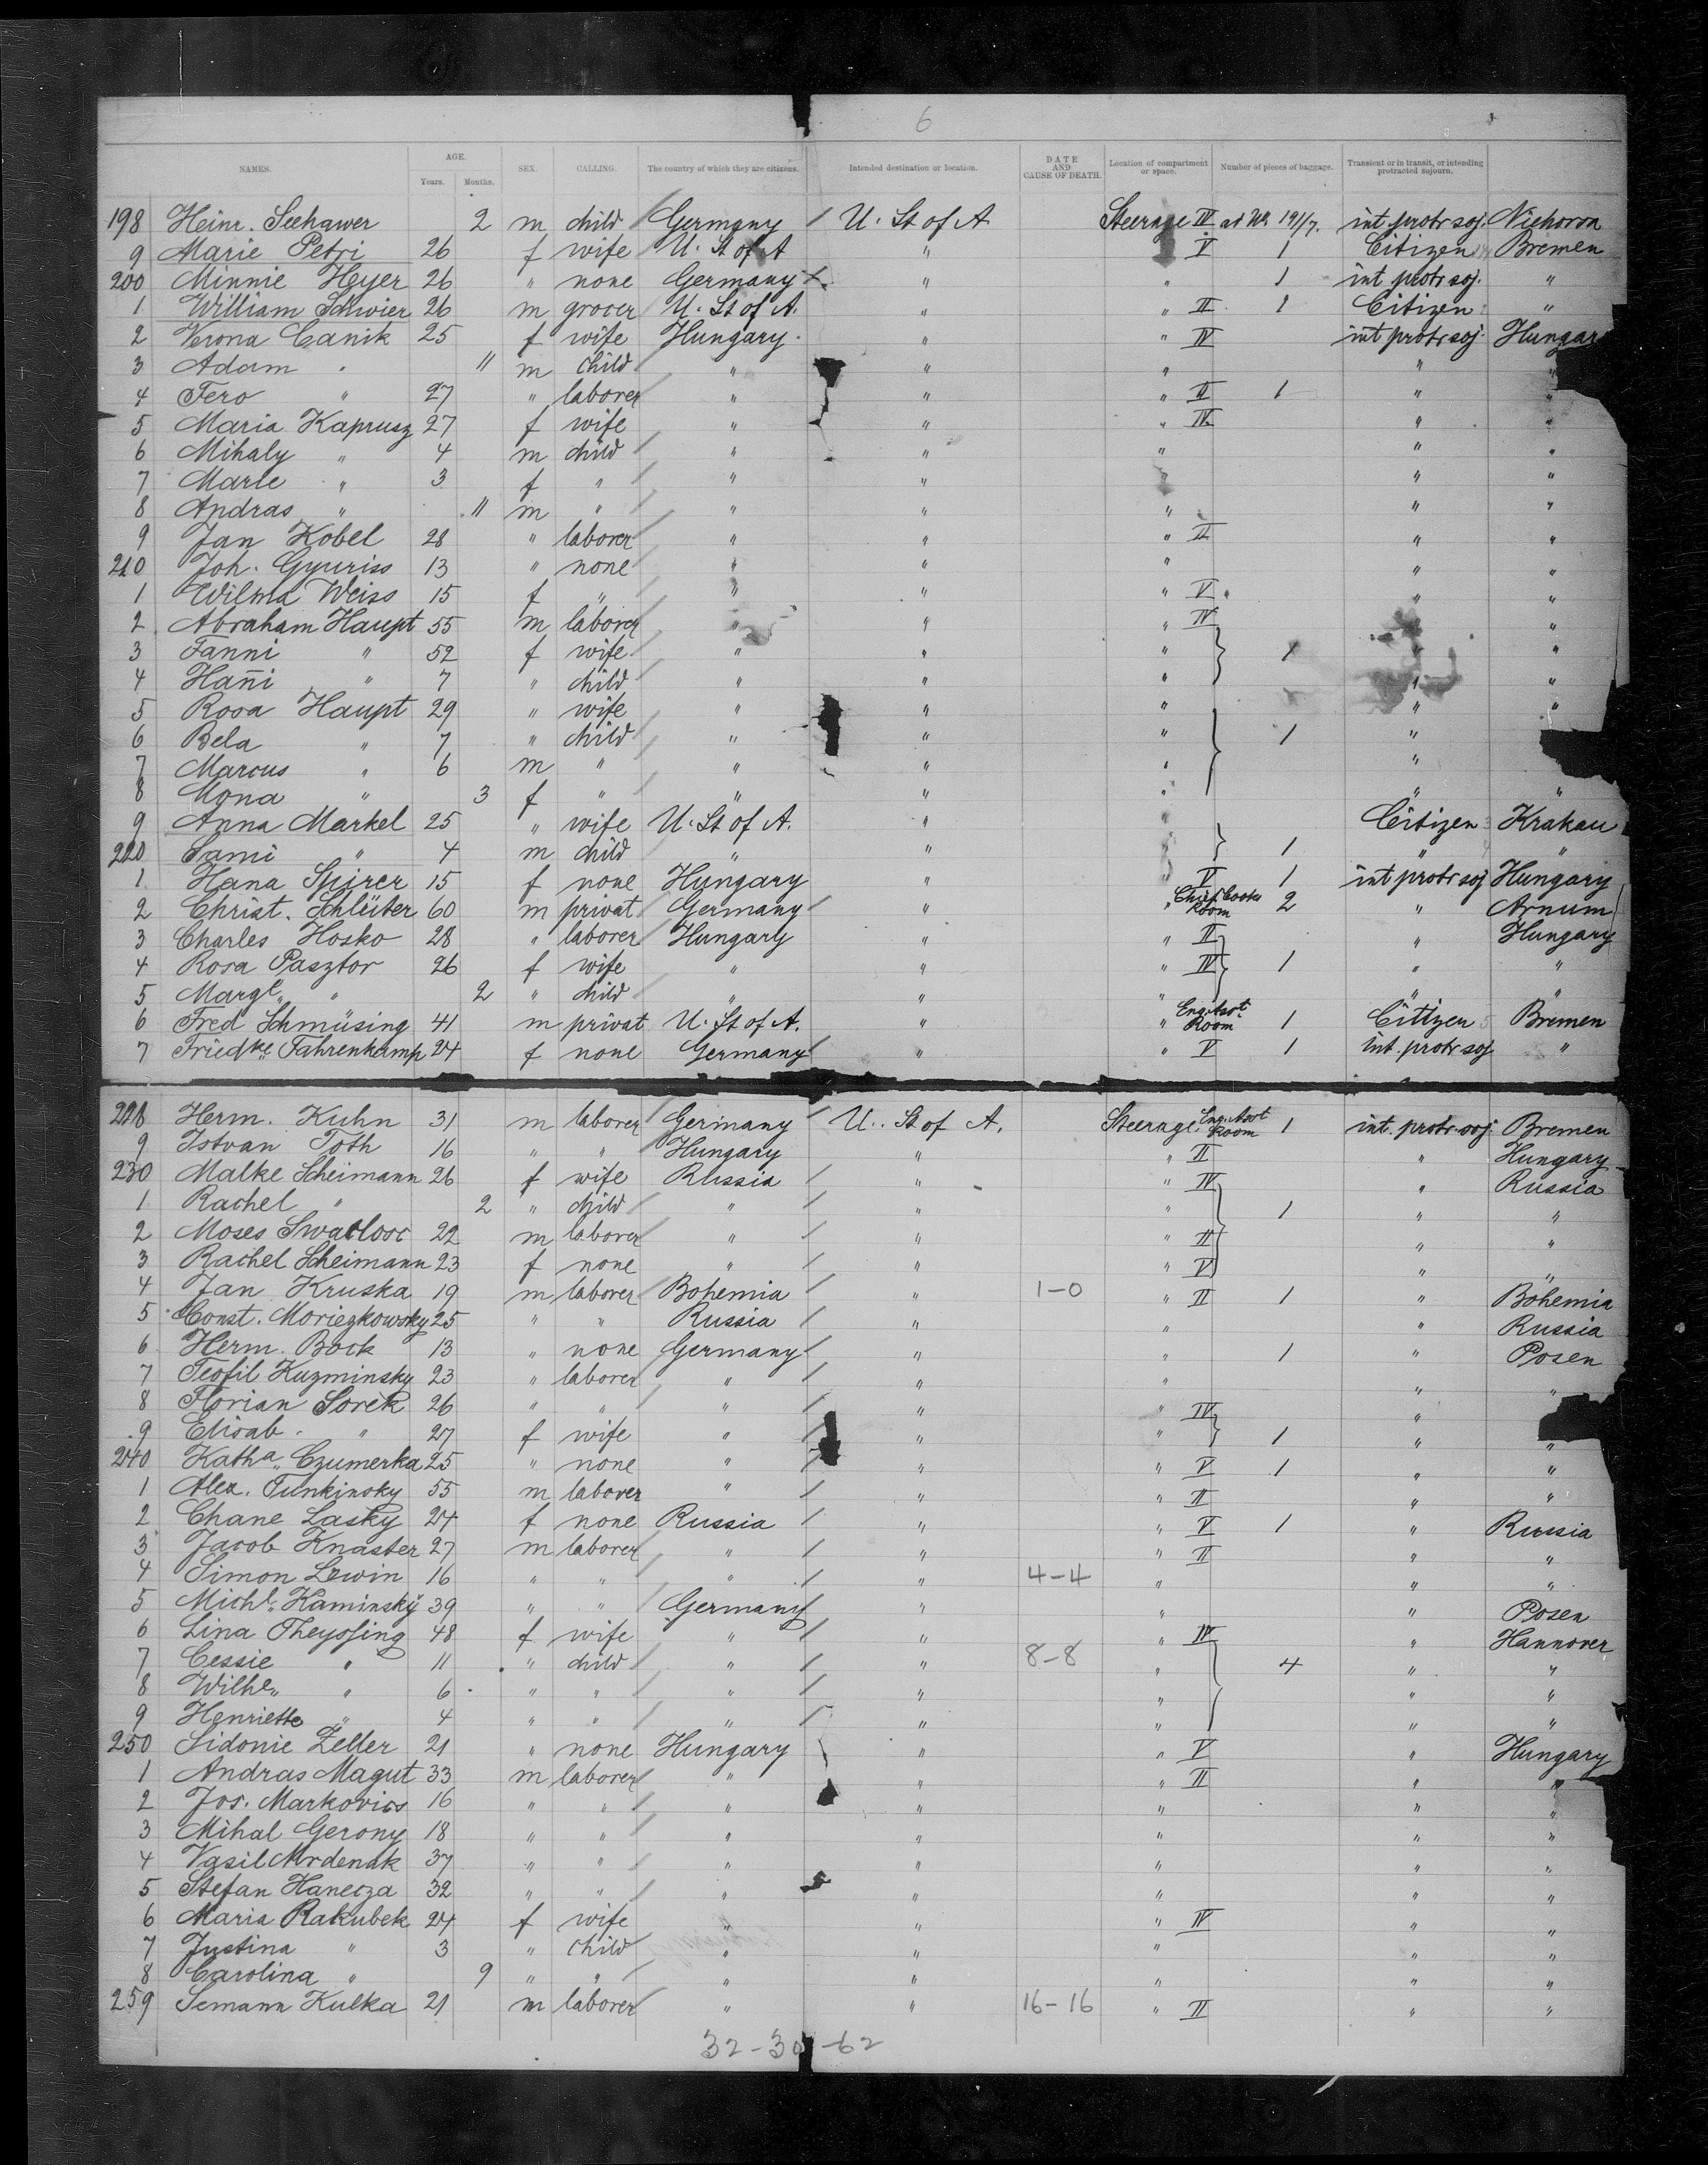 6
NAMES. AGE. Years. Months. SEX. CALLING. The country of which they are citizens. Intended destination or location. DATE AND CAUSE OF DEATH. Location of compartment or space. Number of pieces of baggage. Transient or in transit, or intending protracted sojourn.
198 Heinr. Seehawer 2 m child Germany U. St of A Steerage IV ad No 191/7. int protr soj.
9 Marie Petri 26 f wife U. St of A " " V 1 Citizen Bremen
200 Minnie Heyer 26 " none Germany " " 1 int protr soj. "
1 William Schwier 26 m grocer U. St of A. " " II 1 Citizen "
2 Verona Canik 25 f wife Hungary " " IV int protr soj. Hungar
3 Adam " 11 m child " " " " "
4 Fero " 27 " laborer " " " II 1 " "
5 Maria Kaprusz 27 f wife " " " IV " "
6 Mihaly " 4 m child " " " " "
7 Marie " 3 f " " " " " "
8 Andras " 11 m " " " " " "
9 Jan Kobel 28 " laborer " " " II " "
210 Joh. Gyuriss 13 " none " " " " "
1 Wilma Weiss 15 f " " " " V " "
2 Abraham Haupt 55 m laborer " " " IV " "
3 Fanni " 52 f wife " " " 1 " "
4 Hañi " 7 " child " " " " "
5 Rosa Haupt 29 " wife " " " " "
6 Bela " 7 " child " " " 1 "
7 Marcus " 6 m " " " " "
8 Mona " 3 f " " " " " "
9 Anna Markel 25 " wife U. St of A. " Citizen Krakau
220 Sami " 4 m child " " 1 " "
1 Hana Spirer 15 f none Hungary " " V 1 int protr soj Hungary
2 Christ. Schlüter 60 m privat Germany " " Chief Cooks Room 2 " Arnum
3 Charles Hosko 28 " laborer Hungary " " II " Hungary
4 Rosa Pasztor 26 f wife " " " IV 1 " "
5 Margt. " 2 " child " " " " "
6 Fred Schmüsing 41 m privat U. St of A. " " Eng. Asst Room 1 Citizen Bremen
7 Friedke Fahrenkamp 24 f none Germany " " V 1 int. protr soj "
228 Herm. Kuhn 31 m laborer Germany U. St of A. Steerage Eng. Asst Room 1 int. protr. soj. Bremen
9 Istvan Toth 16 " " Hungary " " II " Hungary
230 Malke Scheimann 26 f wife Russia " " IV " Russia
1 Rachel " 2 " child " " " 1 " "
2 Moses 22 m laborer " " " II " "
3 Rachel Scheimann 23 f none " " " V " "
4 Jan Kruska 19 m laborer Bohemia " 1-0 " II 1 " Bohemia
5 Const. Moriezkowsky 25 " " Russia " " " Russia
6 Herm. Bock 13 " none Germany " " 1 " Posen
7 Teofil Kuzminsky 23 " laborer " " " " "
8 Florian Sorek 26 " " " " " IV "
9 Elisab. " 27 f wife " " " 1 " "
240 Katha. Czumerka 25 " none " " " V 1 " "
1 Alex. Tunkinsky 55 m laborer " " " II " "
2 Chane Lasky 24 f none Russia " " V 1 " Russia
3 Jacob Knaster 27 m laborer " " " II " "
4 Simon Lewin 16 " " " " 4-4 " " "
5 Michl. Kaminsky 39 " " Germany " " " Posen
6 Lina Theyssing 48 f wife " " " IV " Hannover
7 Cessie " 11 " child " " 8-8 " 4 " "
8 Wilhe " 6 " " " " " " "
9 Henriette " 4 " " " " " " "
250 Sidonie Zeller 21 " none Hungary " " V " Hungary
1 Andras Magut 33 m laborer " " " II " "
2 Jos. Markovics 16 " " " " " " "
3 Mihal Gerony 18 " " " " " " "
4 Vasil Mrdenak 37 " " " " " " "
5 Stefan Hanecza 32 " " " " " " "
6 Maria Rakubek 24 f wife " " " IV " "
7 Justina " 3 " child " " " " "
8 Carolina " 9 " " " " " " "
259 Semann Kulka 21 m laborer " " 16-16 " II " "
32-30-62